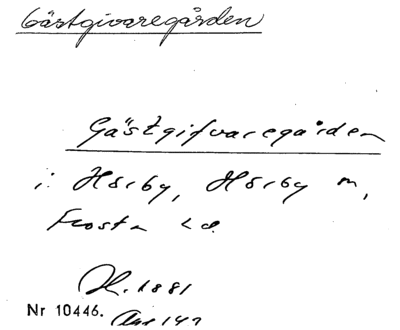 Gästgivaregården
Gästgifvaregården
i Hörby, Hörby m,
Frosta hd.
H. 1881
Nr 10446.